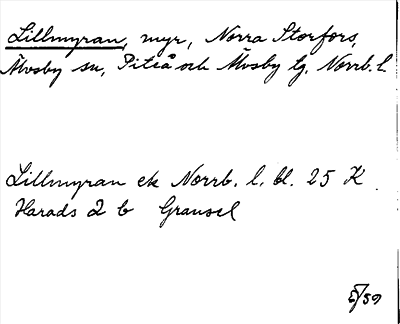 Lillmyran, myr, Norra Storfors,
Älvsby sn, Piteå och Älvsby tg. Norrb. l.
Lillmyran ek Norrb. l. bl. 25 K
Harads 2 b Gransel
5/59